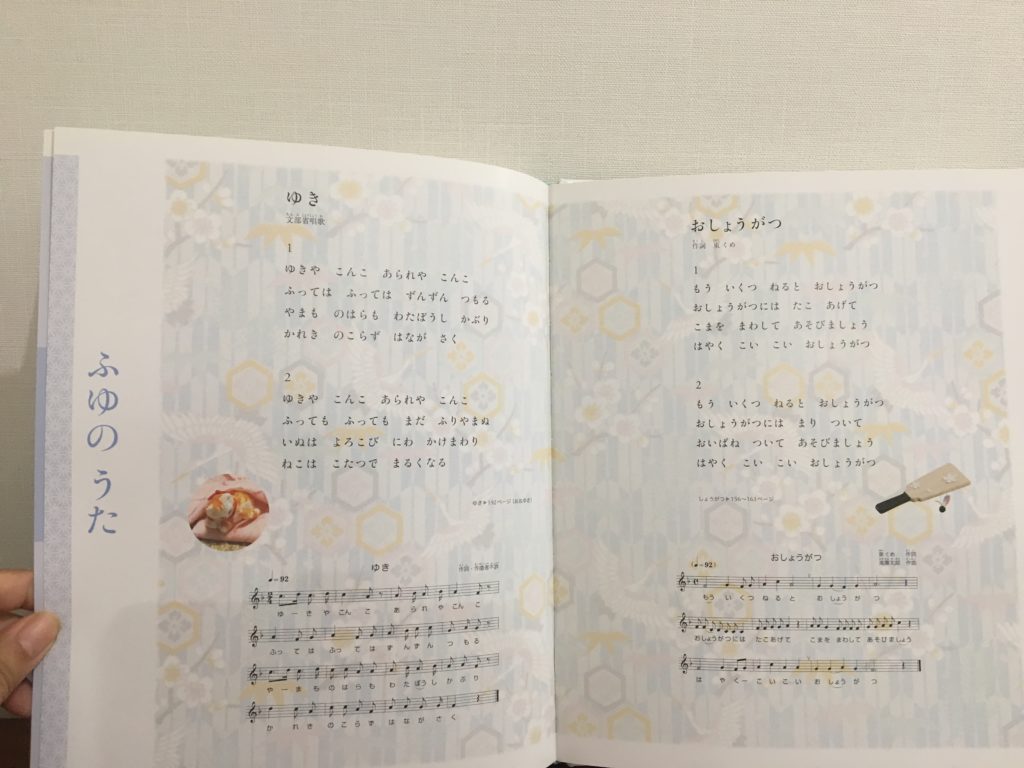 ふゆの うた
ゆき
文部省唱歌
1
ゆきや こんこ あられや こんこ
ふっては ふっては ずんずん つもる
やまも のはらも わたぼうし かぶり
かれき のこらず はなが さく
2
ゆきや こんこ あられや こんこ
ふっても ふっても まだ ふりやまぬ
いぬは よろこび にわ かけまわり
ねこは こたつで まるくなる
ゆき▶192ページ
ゆき
作詞・作曲者不詳
♩=92
ゆーきやこんこ あられやこんこ
ふっては ふってはずんずん つもる
やーまものはらも わたぼうしかぶり
かれきのこらず はながさく
おしょうがつ
作詞 東くめ
1
もう いくつ ねると おしょうがつ
おしょうがつには たこ あげて
こまを まわして あそびましょう
はやく こい こい おしょうがつ
2
もう いくつ ねると おしょうがつ
おしょうがつには まり ついて
おいばね ついて あそびましょう
はやく こい こい おしょうがつ
しょうがつ▶156〜163ページ
おしょうがつ
東くめ 作詞
滝廉太郎 作曲
♩=92
もう いくつねると おしょうがつ
おしょうがつには たこあげて こまを まわして あそびましょう
は やくーこいこい おしょうがつ